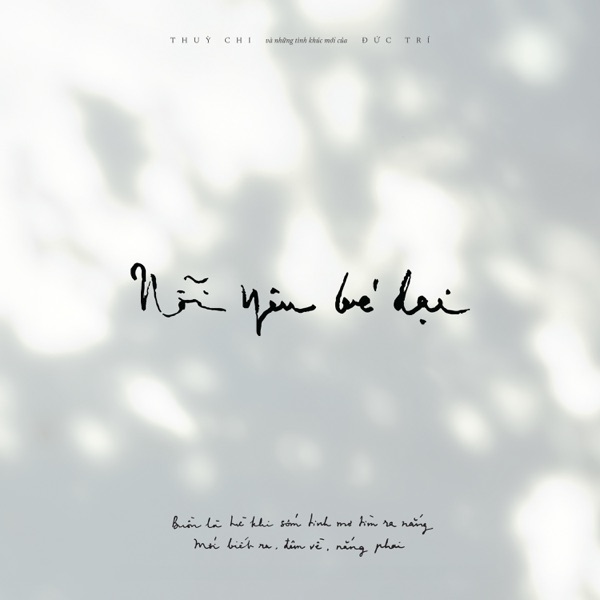 THUỲ CHI và những tình khúc mới của ĐỨC TRÍ
Nỗi yên bé dại
Buồn là từ khi sớm tinh mơ tìm ra nắng
Mới biết ra, đêm về, nắng phai